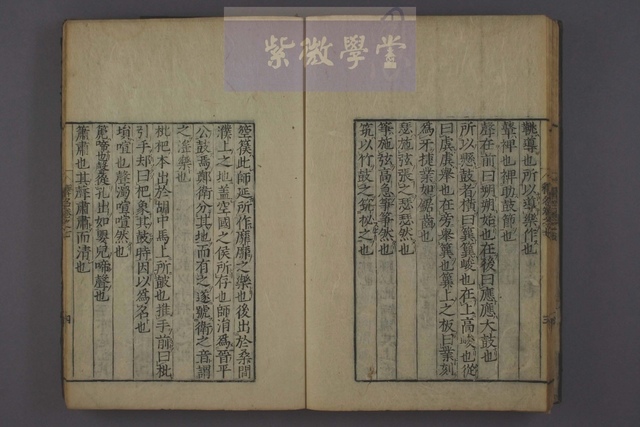 紫微學堂
鞉導也所以導樂作也
鼙裨也裨助鼓節也
聲在前曰朔朔始也在後曰應應大鼓也
所以懸鼓者橫曰簨簨峻也在上高峻也從
曰虡虡舉也在旁舉簨也簨上之板曰業刻
為牙捷業如鋸齒也
瑟施弦張之瑟瑟然也
箏施弦高急箏箏然也
筑以竹鼓之筑柲之也
箜篌此師延所作靡靡之樂也後出於桑間
濮上之地蓋空國之侯所存也師涓為晉平
公鼓焉鄭衛分其地而有之遂號鄭衛之音謂
之淫樂也
枇杷本出於胡中馬上所鼓也推手前曰枇
引手却曰杷象其鼓時因以為名也
塤喧也聲濁喧喧然也
箎啼也聲從孔出如嬰兒啼聲也
簫肅也其聲肅肅而清也